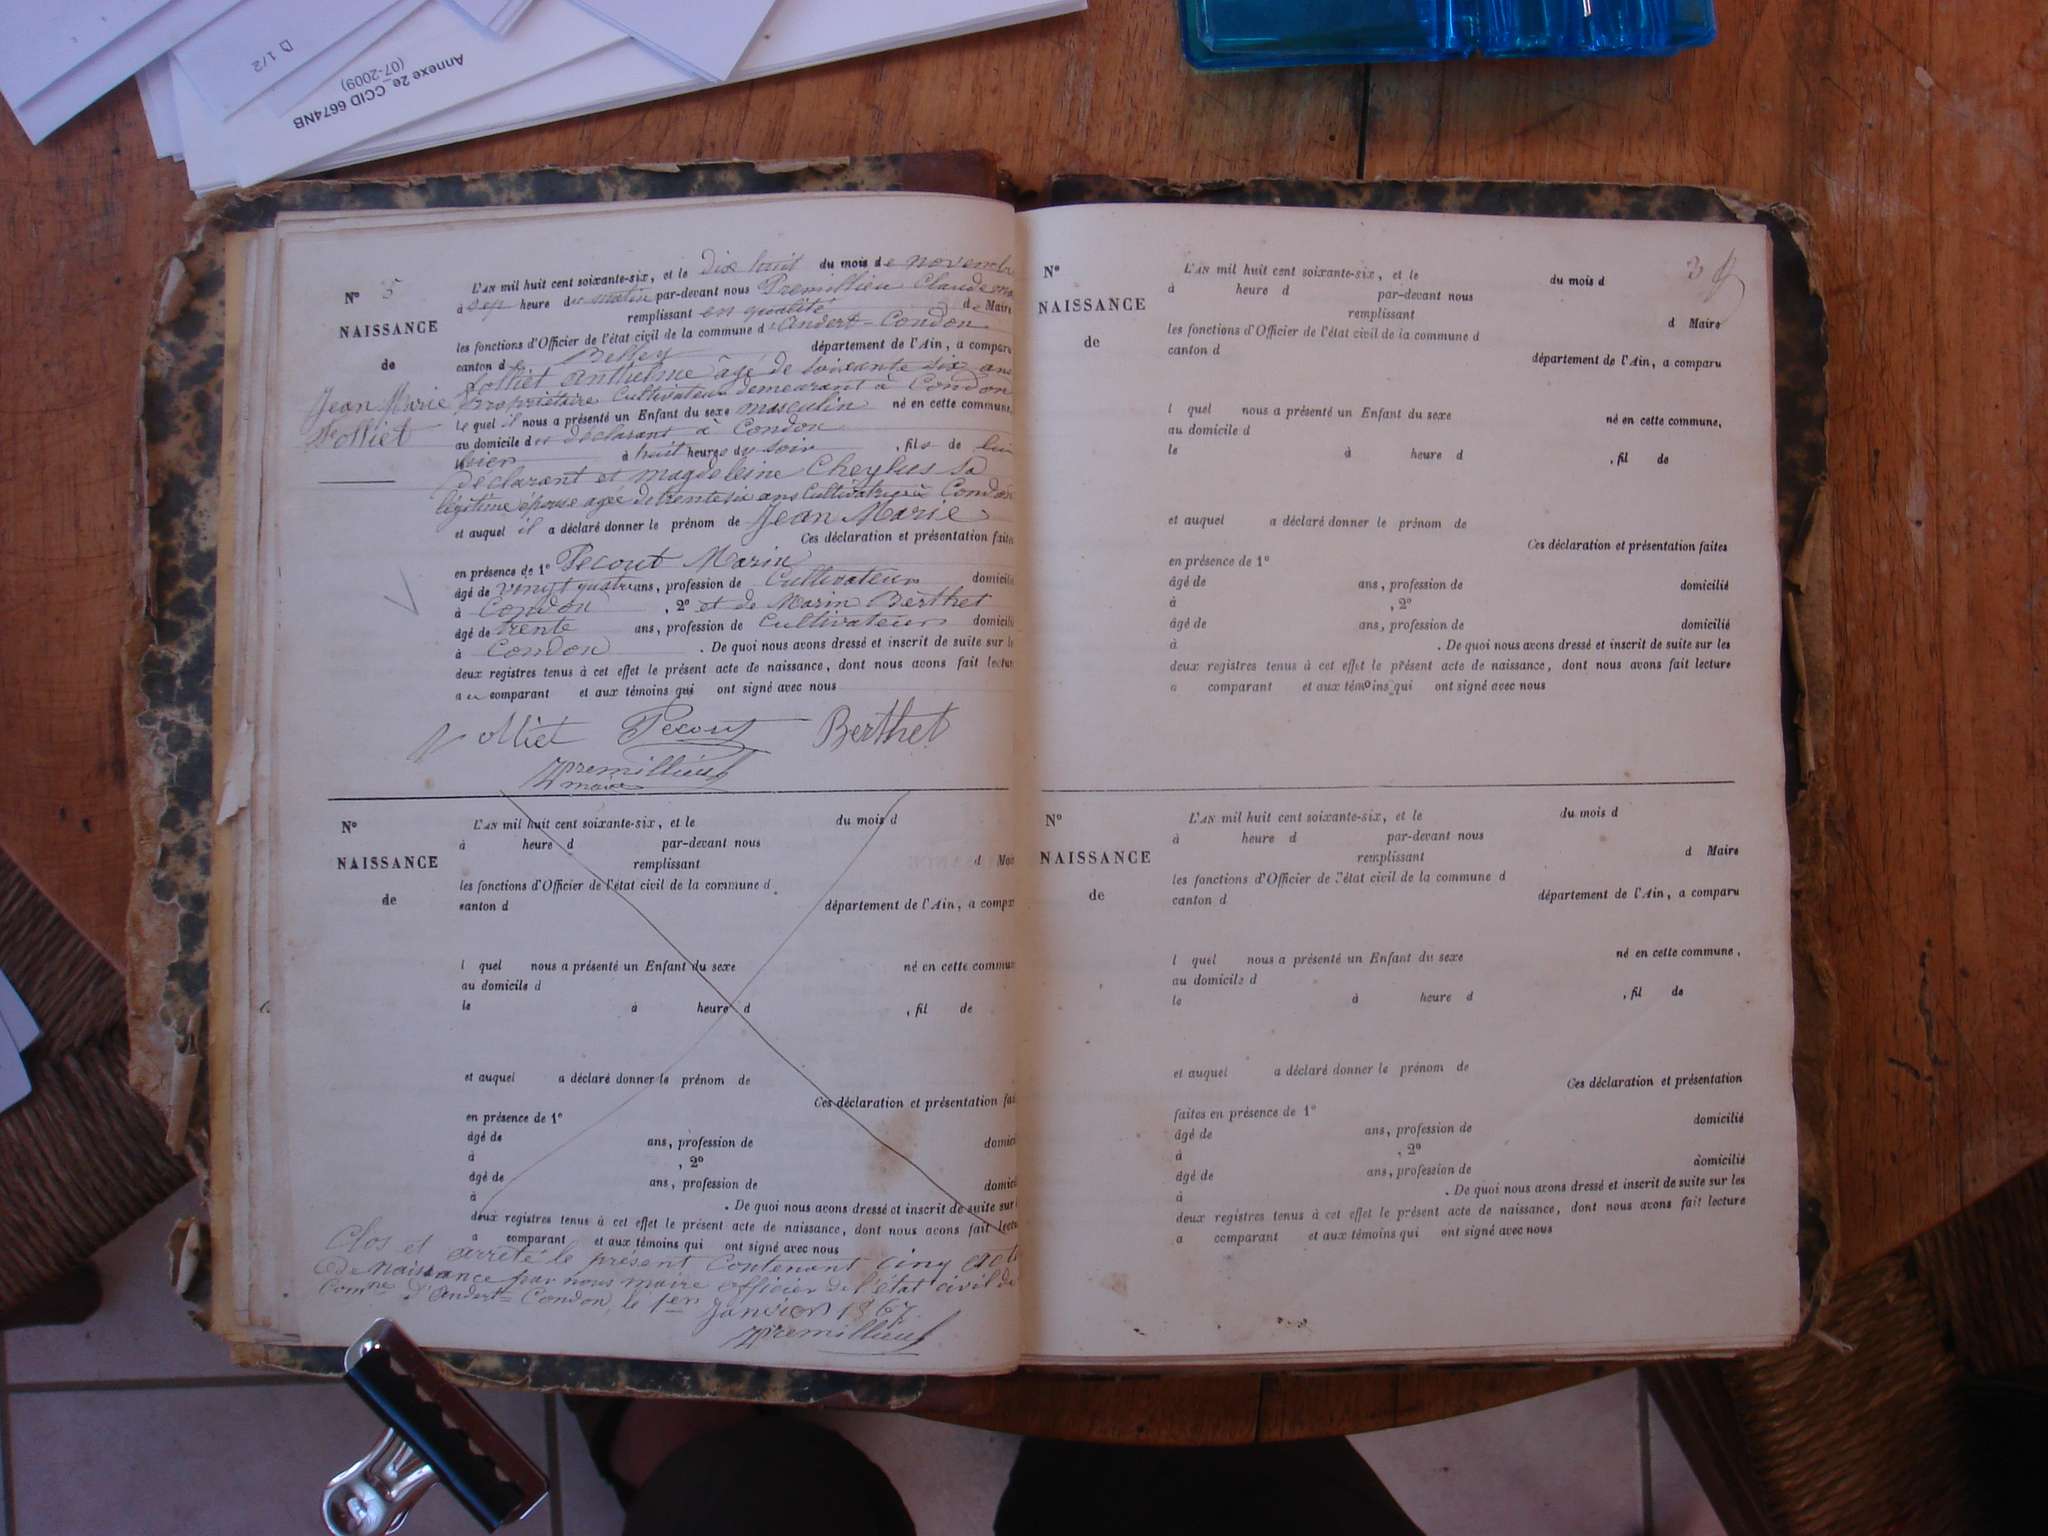 D 1/2
Annexe 2e_CCID 6674NB
(07-2009)
N° 5
NAISSANCE
de
Jean Marie
Volliet
L'AN mil huit cent soixante-six, et le dix huit du mois de novembr
à sep heure du matin par-devant nous Premillieu Claude
remplissant en qualité de Maire
les fonctions d'Officier de l'état civil de la commune d'Andert-Condon
canton de Belley département de l'Ain, a comparu
Volliet Anthelme âgé de soixante six ans
propriétaire Cultivateur demeurant à Condon
le quel il nous a présenté un Enfant du sexe masculin né en cette commune,
au domicile du déclarant à Condon
hier à huit heures du soir , fils de lui
déclarant et Magdeleine Cheylus sa
légitime épouse agée de trente six ans Cultivatrice à Condon
et auquel il a déclaré donner le prénom de Jean Marie
Ces déclaration et présentation faites
en présence de 1° Pecout Marin
âgé de vingt quatre ans, profession de Cultivateur domicilié
à Condon , 2° et de Marin Berthet
âgé de trente ans, profession de Cultivateur domicilié
à Condon . De quoi nous avons dressé et inscrit de suite sur le
deux registres tenus à cet effet le présent acte de naissance, dont nous avons fait lectur
a u comparant et aux témoins qui ont signé avec nous
Volliet Pecout Berthet
Premillieu
maire
N°
NAISSANCE
de
L'AN mil huit cent soixante-six, et le du mois d
à heure d par-devant nous
remplissant d Mai
les fonctions d'Officier de l'état civil de la commune d
canton d département de l'Ain, a compar
l quel nous a présenté un Enfant du sexe né en cette commun
au domicile d
le à heure d , fil de
et auquel a déclaré donner le prénom de
Ces déclaration et présentation fai
en présence de 1°
âgé de ans, profession de domici
à , 2°
âgé de ans, profession de domici
à . De quoi nous avons dressé et inscrit de suite sur
deux registres tenus à cet effet le présent acte de naissance, dont nous avons fait lectu
a comparant et aux témoins qui ont signé avec nous
Clos et arreté le présent Contenant cinq acte
de Naissance par nous maire officier de l'état civil de
Comne d'Andert-Condon, le 1er Janvier 1867
Premillieu
3
N°
NAISSANCE
de
L'AN mil huit cent soixante-six, et le du mois d
à heure d par-devant nous
remplissant d Maire
les fonctions d'Officier de l'état civil de la commune d
canton d département de l'Ain, a comparu
l quel nous a présenté un Enfant du sexe né en cette commune,
au domicile d
le à heure d , fil de
et auquel a déclaré donner le prénom de
Ces déclaration et présentation faites
en présence de 1°
âgé de ans, profession de domicilié
à , 2°
âgé de ans, profession de domicilié
à . De quoi nous avons dressé et inscrit de suite sur les
deux registres tenus à cet effet le présent acte de naissance, dont nous avons fait lecture
a comparant et aux témoins qui ont signé avec nous
N°
NAISSANCE
de
L'AN mil huit cent soixante-six, et le du mois d
à heure d par-devant nous
remplissant d Maire
les fonctions d'Officier de l'état civil de la commune d
canton d département de l'Ain, a comparu
l quel nous a présenté un Enfant du sexe né en cette commune,
au domicile d
le à heure d , fil de
et auquel a déclaré donner le prénom de
Ces déclaration et présentation
faites en présence de 1°
âgé de ans, profession de domicilié
à , 2°
âgé de ans, profession de domicilié
à . De quoi nous avons dressé et inscrit de suite sur les
deux registres tenus à cet effet le présent acte de naissance, dont nous avons fait lecture
a comparant et aux témoins qui ont signé avec nous